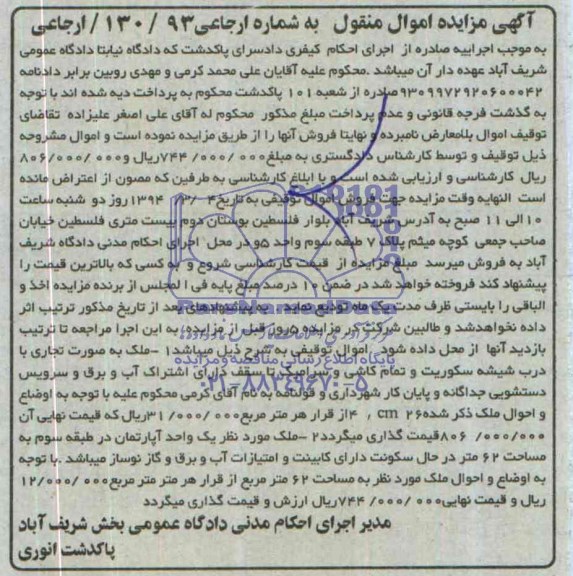 آگهی مزایده اموال منقول به شماره ارجاعی ۹۳ / ۱۳۰ / ارجاعی
به موجب اجراییه صادره از اجرای احکام کیفری دادسرای پاکدشت که دادگاه نیابتا دادگاه عمومی
شریف آباد عهده دار آن میباشد .محکوم علیه آقایان علی محمد کرمی و مهدی روبین برابر دادنامه
۹۳۰۹۹۷۲۹۲۰۶۰۰۰۴۲ صادره از شعبه ۱۰۱ پاکدشت محکوم به پرداخت دیه شده اند با توجه
به گذشت فرجه قانونی و عدم پرداخت مبلغ مذکور محکوم له آقای علی اصغر علیزاده تقاضای
توقیف اموال بلامعارض نامبرده و نهایتا فروش آنها را از طریق مزایده نموده است و اموال مشروحه
ذیل توقیف و توسط کارشناس دادگستری به مبلغ ۷۴۴/۰۰۰/۰۰۰ ریال و ۸۰۶/۰۰۰/۰۰۰
ریال کارشناسی و ارزیابی شده است و با ابلاغ کارشناسی به طرفین که مصون از اعتراض مانده
است النهایه وقت مزایده جهت فروش اموال توقیفی به تاریخ ۱۳۹۴ روز دو شنبه ساعت
۱۰ الی ۱۱ صبح به آدرس شریف آباد بلوار فلسطین بوستان دوم بیست متری فلسطین خیابان
صاحب جمعی کوچه میثم پلاک ۷ طبقه سوم واحد ۵ و در محل اجرای احکام مدنی دادگاه شریف
آباد به فروش میرسد مبلغ مزایده از قیمت کارشناسی شروع و به کسی که بالاترین قیمت را
پیشنهاد کند فروخته خواهد شد در ضمن ۱۰ درصد مبلغ پایه فی المجلس از برنده مزایده اخذ و
الباقی را بایستی ظرف مدت یک ماه تودیع نماید به پیشنهادهای بعد از تاریخ مذکور ترتیب اثر
داده نخواهدشد و طالبین شرکت در مزایده ۵ روز قبل از مزایده به این اجرا مراجعه تا ترتیب
بازدید آنها از محل داده شود اموال توقیفی به شرح ذیل میباشد ۱ -ملک به صورت تجاری با
درب شیشه سکوریت و تمام کاشی و سرامیک تا سقف دارای اشتراک آب و برق و سرویس
دستشویی جداگانه و پایان کار شهرداری و قولنامه به نام آقای کرمی محکوم علیه با توجه به اوضاع
و احوال ملک ذکر شده ۲۶ cm , ۴ از قرار هر متر مربع ۳۱/۰۰۰/۰۰۰ ریال که قیمت نهایی آن
۸۰۶/۰۰۰/۰۰۰ قیمت گذاری میگردد ۲ -ملک مورد نظر یک واحد آپارتمان در طبقه سوم به
مساحت ۶۲ متر در حال سکونت دارای کابینت و امتیازات آب و برق و گاز نوساز میباشد .با توجه
به اوضاع و احوال ملک مورد نظر به مساحت ۶۲ متر مربع از قرار هر متر متر مربع ۱۲/۰۰۰/۰۰۰
ریال و قیمت نهایی ۷۴۴/۰۰۰/۰۰۰ ریال ارزش و قیمت گذاری میگردد
مدیر اجرای احکام مدنی دادگاه عمومی بخش شریف آباد
پاکدشت انوری
ParsNamadData
پایگاه اطلاع رسانی مناقصه و مزایده
۰۲۱-۸۸۳۴۹۶۷۰-۵